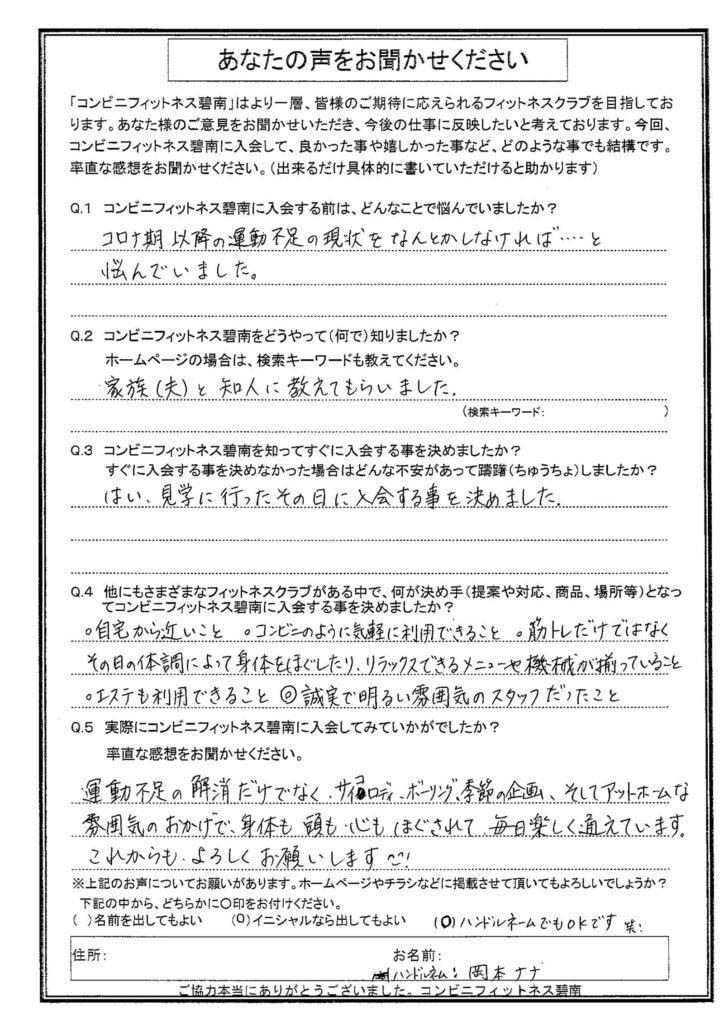 あなたの声をお聞かせください
「コンビニフィットネス碧南」はより一層、皆様のご期待に応えられるフィットネスクラブを目指してお
ります。あなた様のご意見をお聞かせいただき、今後の仕事に反映したいと考えております。今回、
コンビニフィットネス碧南に入会して、良かった事や嬉しかった事など、どのような事でも結構です。
率直な感想をお聞かせください。（出来るだけ具体的に書いていただけると助かります）
Q.1 コンビニフィットネス碧南に入会する前は、どんなことで悩んでいましたか？
コロナ期以降の運動不足の現状をなんとかしなければ‥‥と
悩んでいました。
Q.2 コンビニフィットネス碧南をどうやって（何で）知りましたか？
ホームページの場合は、検索キーワードも教えてください。
家族（夫）と知人に教えてもらいました。
（検索キーワード: ）
Q.3 コンビニフィットネス碧南を知ってすぐに入会する事を決めましたか？
すぐに入会する事を決めなかった場合はどんな不安があって躊躇（ちゅうちょ）しましたか？
はい、見学に行ったその日に入会する事を決めました。
Q.4 他にもさまざまなフィットネスクラブがある中で、何が決め手（提案や対応、商品、場所等）となっ
てコンビニフィットネス碧南に入会する事を決めましたか？
○自宅から近いこと ○コンビニのように気軽に利用できること ○筋トレだけではなく
その日の体調によって身体をほぐしたり、リラックスできるメニューや機械が揃っていること
○エステも利用できること ◎誠実で明るい雰囲気のスタッフだったこと
Q.5 実際にコンビニフィットネス碧南に入会してみていかがでしたか？
率直な感想をお聞かせください。
運動不足の解消だけでなく、サイコロディ、ボーリング、季節の企画、そしてアットホームな
雰囲気のおかげで、身体も頭も心もほぐされて毎日楽しく通えています。
これからもよろしくお願いします〜!
※上記のお声についてお願いがあります。ホームページやチラシなどに掲載させて頂いてもよろしいでしょうか？
下記の中から、どちらかに〇印をお付けください。
（ ）名前を出してもよい （○）イニシャルなら出してもよい （○）ハンドルネームでもOKです 笑!
住所: お名前:
ハンドルネム: 岡本ナナ
ご協力本当にありがとうございました。コンビニフィットネス碧南